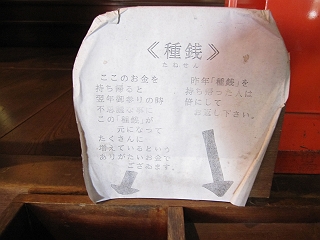 《種銭》
たねせん
昨年「種銭」を
持ち帰った人は
倍にして
お返し下さい。
ここのお金を
持ち帰ると
翌年御参りの時
不思議な事に
この「種銭」が
元になって
たくさんに
増えているという
ありがたいお金で
ございます。